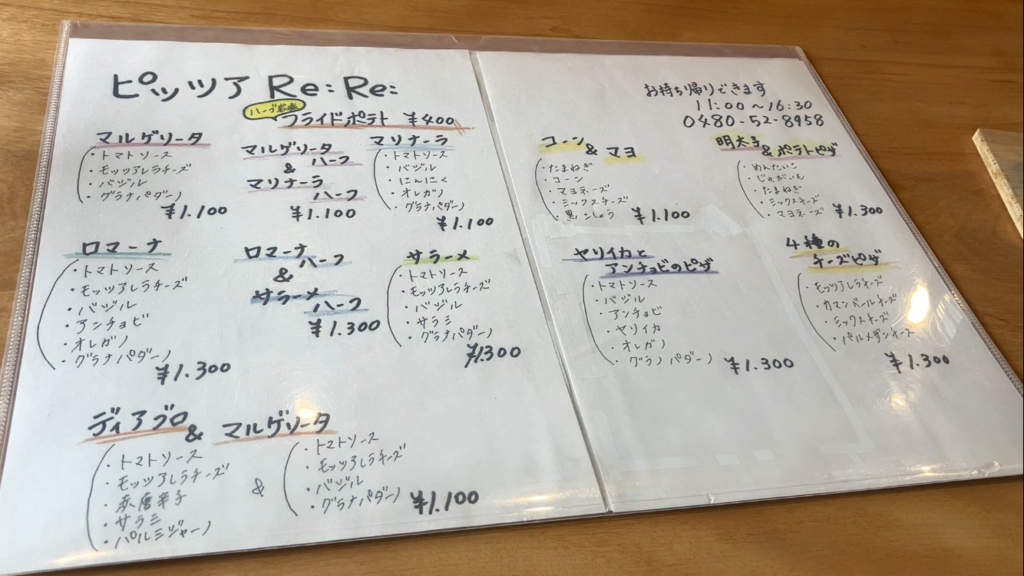 ピッツア Re: Re:
ハーブ岩塩
フライドポテト ¥400
マルゲリータ
・トマトソース
・モッツアレラチーズ
・バジル
・グラナパダーノ
¥1.100
マルゲリータ
& ハーフ
マリナーラ
ハーフ
¥1.100
マリナーラ
・トマトソース
・バジル
・にんにく
・オレガノ
・グラナパダーノ
¥1.100
ロマーナ
・トマトソース
・モッツアレラチーズ
・バジル
・アンチョビ
・オレガノ
・グラナパダーノ
¥1.300
ロマーナ
& ハーフ
サラーメ
ハーフ
¥1.300
サラーメ
・トマトソース
・モッツアレラチーズ
・バジル
・サラミ
・グラナパダーノ
¥1300
ディアブロ & マルゲリータ
・トマトソース
・モッツアレラチーズ
・赤唐辛子
・サラミ
・パルミジャーノ
&
・トマトソース
・モッツアレラチーズ
・バジル
・グラナパダーノ
¥1.100
お持ち帰りできます
11:00〜16:30
0480-52-8958
コーン
& マヨ
・たまねぎ
・コーン
・マヨネーズ
・ミックスチーズ
・黒こしょう
¥1.100
明太子
& ポテトピザ
・めんたいこ
・じゃがいも
・たまねぎ
・ミックスチーズ
・マヨネーズ
¥1.300
ヤリイカと
アンチョビのピザ
・トマトソース
・バジル
・アンチョビ
・ヤリイカ
・オレガノ
・グラナパダーノ
¥1.300
4種の
チーズピザ
・モッツアレラチーズ
・カマンベールチーズ
・ミックスチーズ
・パルメザンチーズ
¥1.300